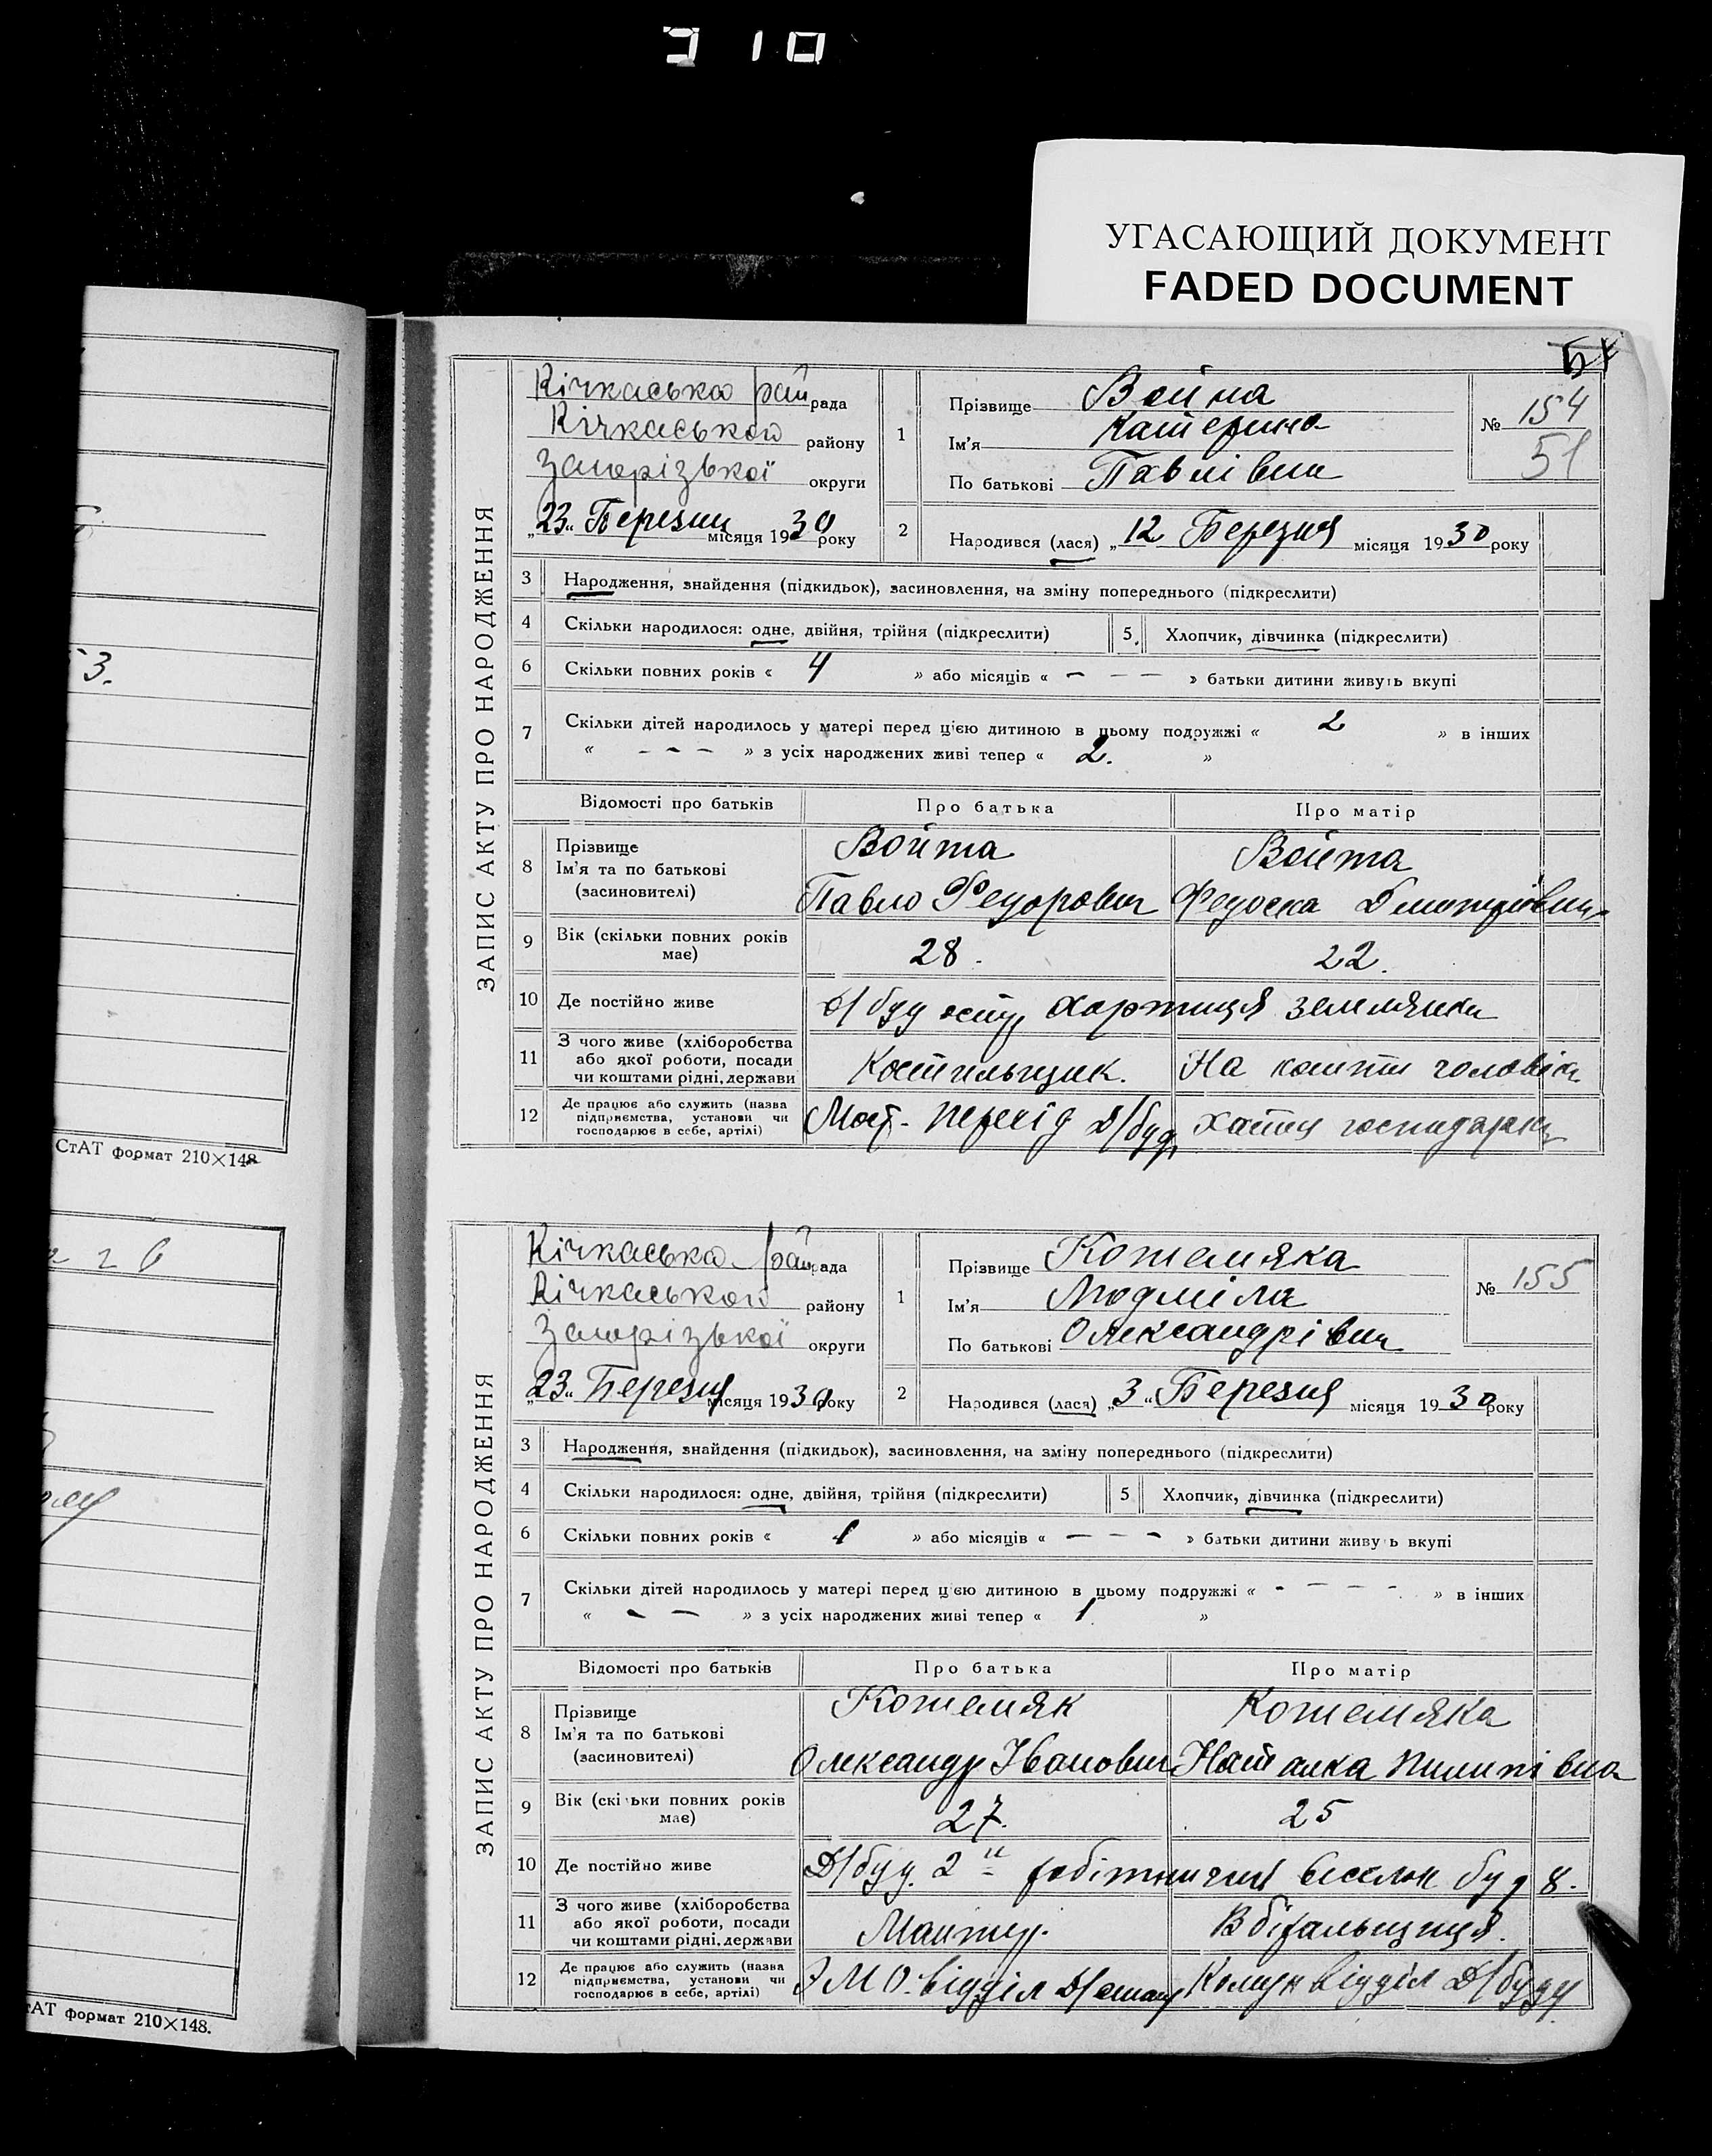 310
УГАСАЮЩИЙ ДОКУМЕНТ
FADED DOCUMENT
51
ЗАПИС АКТУ ПРО НАРОДЖЕННЯ
Кічкаська рай рада
Кічкаської району
Запорізької округи
„23“ Березня місяця 1930 року
1
Прізвище Война
Ім'я Катерина
По батькові Павлівна
№ 154
51
2
Народився (лася) „12 Березня місяця 1930 року
3 Народження, знайдення (підкидьок), засиновлення, на зміну попереднього (підкреслити)
4 Скільки народилося: одне, двійня, трійня (підкреслити) 5. Хлопчик, дівчинка (підкреслити)
6 Скільки повних років « 4 » або місяців « - - - » батьки дитини живуть вкупі
7 Скільки дітей народилось у матері перед цією дитиною в цьому подружжі « 2 » в інших
« - - - » з усіх народжених живі тепер « 2. »
Відомості про батьків Про батька Про матір
8 Прізвище Война Война
Ім'я та по батькові Павло Федорович Федоска
(засиновителі)
9 Вік (скільки повних років має) 28. 22.
10 Де постійно живе Д/буд Хортиця землянка
11 З чого живе (хліборобства або якої роботи, посади чи коштами рідні, держави Костильщик. На кошти чоловіка
12 Де працює або служить (назва підприємства, установи чи господарює в себе, артілі) Мот. перехід Д/буд Хатня господарка
ЗАПИС АКТУ ПРО НАРОДЖЕННЯ
Кічкаська рай рада
Кічкаської району
Запорізької округи
„23“ Березня місяця 1930 року
1
Прізвище Кожемяка
Ім'я Людміла
По батькові Олександрівна
№ 155
2
Народився (лася) „3“ Березня місяця 1930 року
3 Народження, знайдення (підкидьок), засиновлення, на зміну попереднього (підкреслити)
4 Скільки народилося: одне, двійня, трійня (підкреслити) 5 Хлопчик, дівчинка (підкреслити)
6 Скільки повних років « 1 » або місяців « - - - » батьки дитини живуть вкупі
7 Скільки дітей народилось у матері перед цією дитиною в цьому подружжі « - - - - » в інших
« - - » з усіх народжених живі тепер « 1 »
Відомості про батьків Про батька Про матір
8 Прізвище Кожемяк Кожемяка
Ім'я та по батькові Олександр Іванович Наталка Пилипівна
(засиновителі)
9 Вік (скільки повних років має) 27. 25
10 Де постійно живе Д/буд. 2й робітничий виселок буд 8.
11 З чого живе (хліборобства або якої роботи, посади чи коштами рідні, держави Монтер. Вбіральщиця.
12 Де працює або служить (назва підприємства, установи чи господарює в себе, артілі) Э М О. відділ Комун відділ Д/буду
СтАТ формат 210×148
АТ формат 210×148.
53.